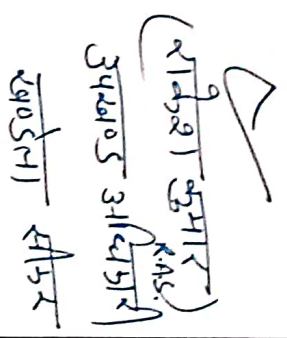 (राकेश कुमार)
R.A.S.
उपखण्ड अधिकारी
खण्डेला सीकर